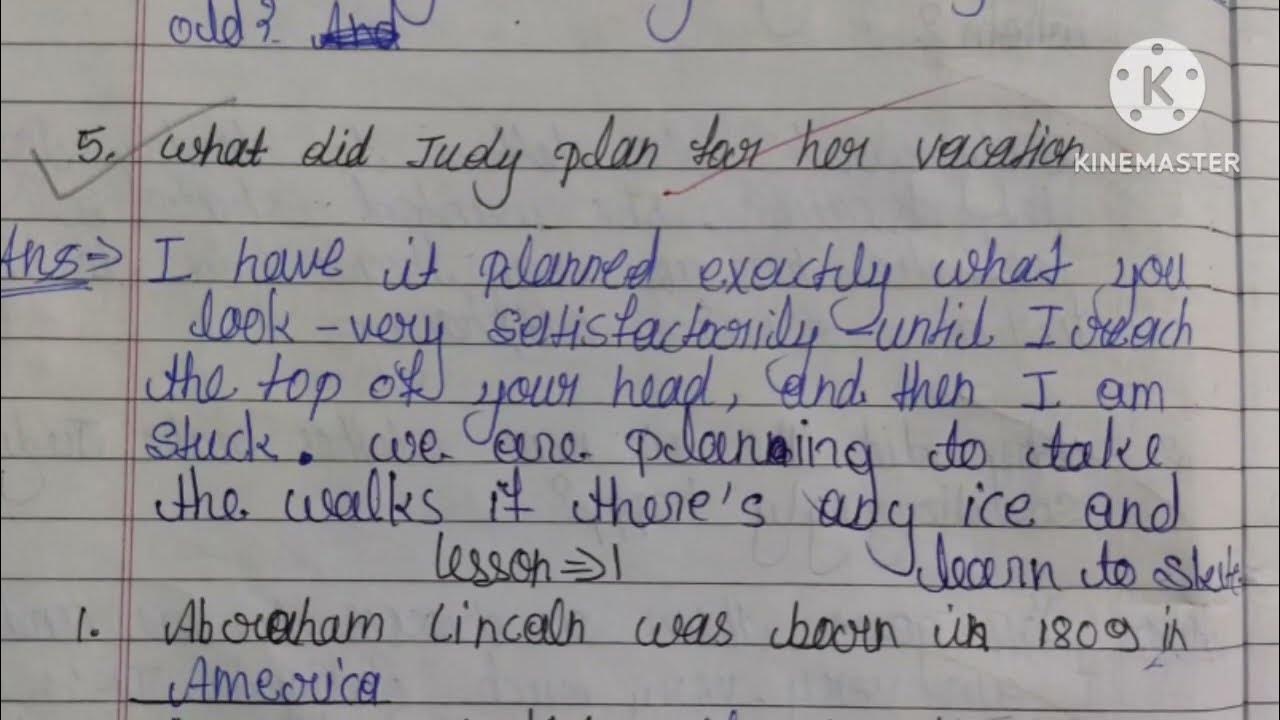 odd? And
5. What did Judy plan for her vacation
Ans⇒ I have it planned exactly what you
look - very satisfactorily - until I reach
the top of your head, and then I am
stuck. we are planning to take
the walks if there's any ice and
learn to skate
lesson ⇒ 1
1. Abraham Lincoln was born in 1809 in
America
K
KINEMASTER